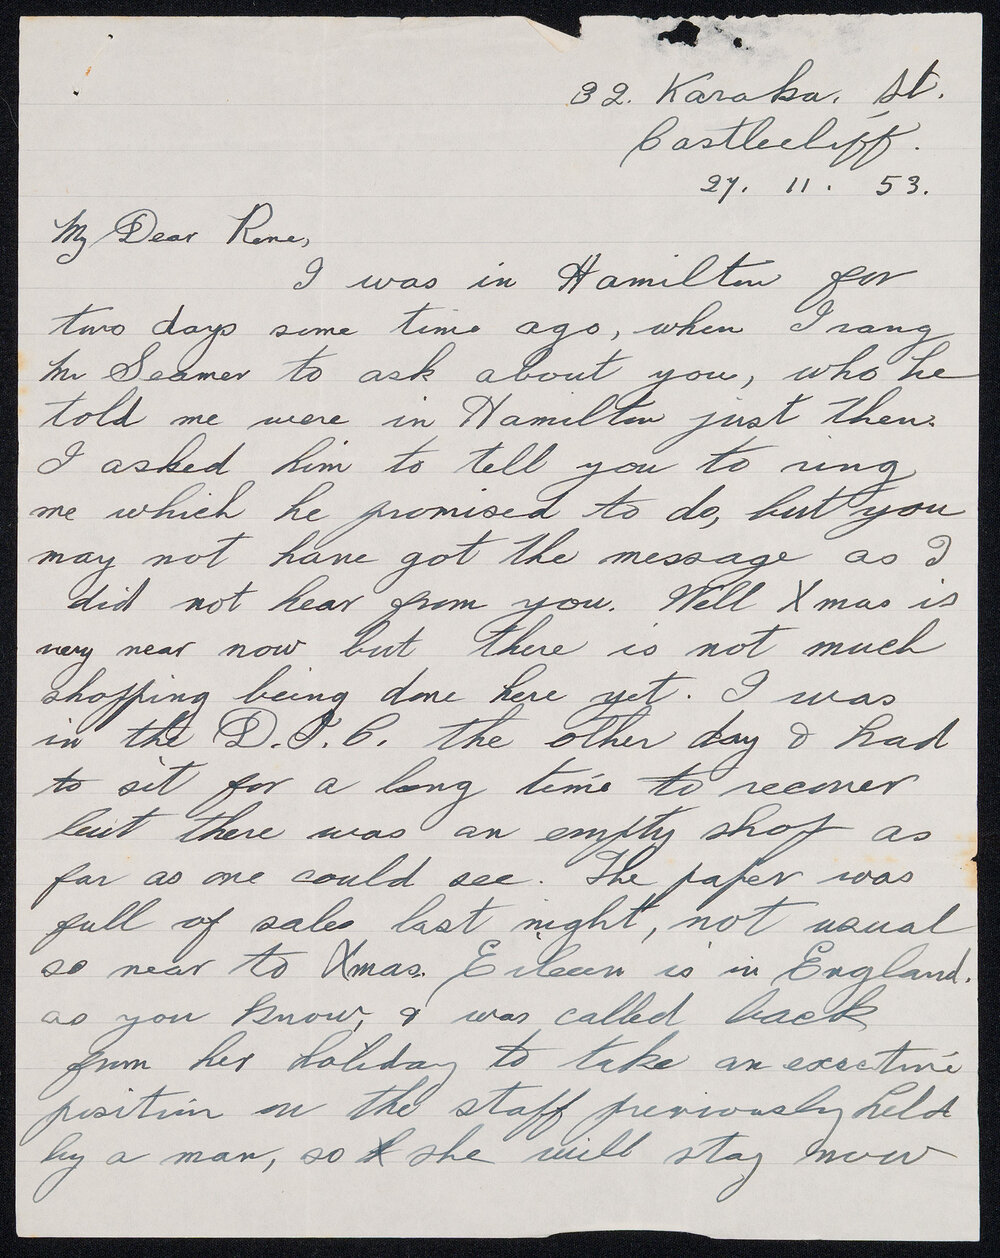 32. Karaka. St.
Castlecliff.
27. 11. 53.
My Dear Rene,
I was in Hamilton for
two days some time ago, when I rang
Mr Seamer to ask about you, who he
told me were in Hamilton just then.
I asked him to tell you to ring
me which he promised to do, but you
may not have got the message as I
did not hear from you. Well Xmas is
very near now but there is not much
shopping being done here yet. I was
in the D.I.C. the other day & had
to sit for a long time to recover
but there was an empty shop as
far as one could see. The paper was
full of sales last night, not usual
so near to Xmas. Eileen is in England.
as you know, & was called back
from her holiday to take an exective
position on the staff previously held
by a man, so she will stay now